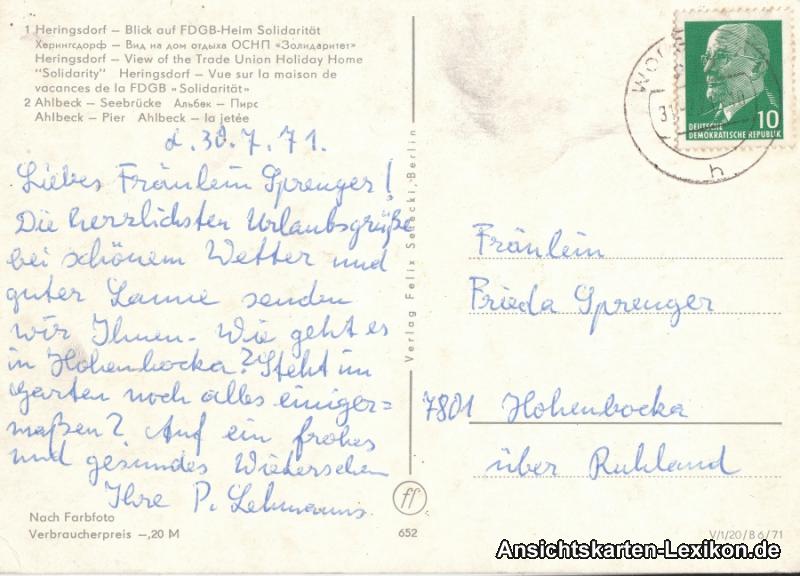 1 Heringsdorf – Blick auf FDGB-Heim Solidarität
Херингсдорф – Вид на дом отдыха ОСНП «Золидаритет»
Heringsdorf – View of the Trade Union Holiday Home
"Solidarity" Heringsdorf – Vue sur la maison de
vacances de la FDGB «Solidarität»
2 Ahlbeck – Seebrücke Альбек – Пирс
Ahlbeck – Pier Ahlbeck – la jetée
d. 30.7.71.
Liebes Fräulein Sprenger!
Die herzlichsten Urlaubsgrüße
bei schönem Wetter und
guter Laune senden
wir Ihnen. Wie geht es
in Hohenbocka? Steht im
Garten noch alles einiger=
maßen? Auf ein frohes
und gesundes Wiedersehen
Ihre P. Lehmanns.
Nach Farbfoto
Verbraucherpreis –,20 M
Verlag Felix Setecki, Berlin
ff
652
10
DEUTSCHE
DEMOKRATISCHE REPUBLIK
h
Fräulein
Frieda Sprenger
7801 Hohenbocka
über Ruhland
V/1/20/B 6/71
Ansichtskarten-Lexikon.de